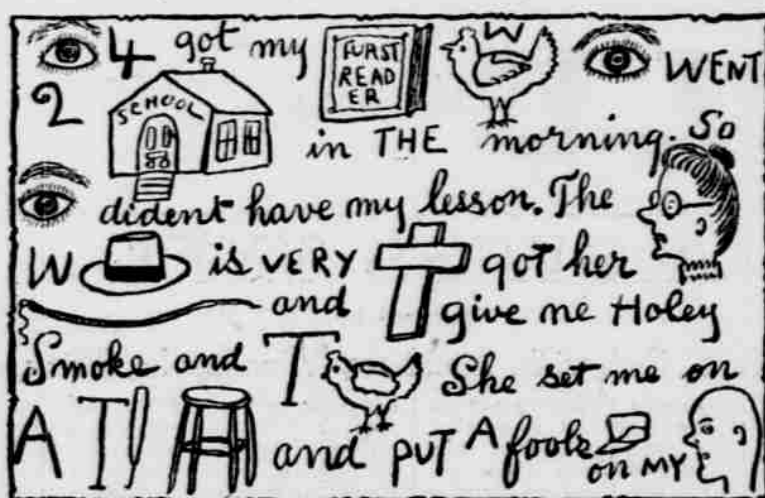 4 got my FURST READ ER W WENT
2 SCHOOL in THE morning. So
dident have my lesson. The
W is VERY got her
and give me Holey
Smoke and T She set me on
A T and PUT A fools on MY